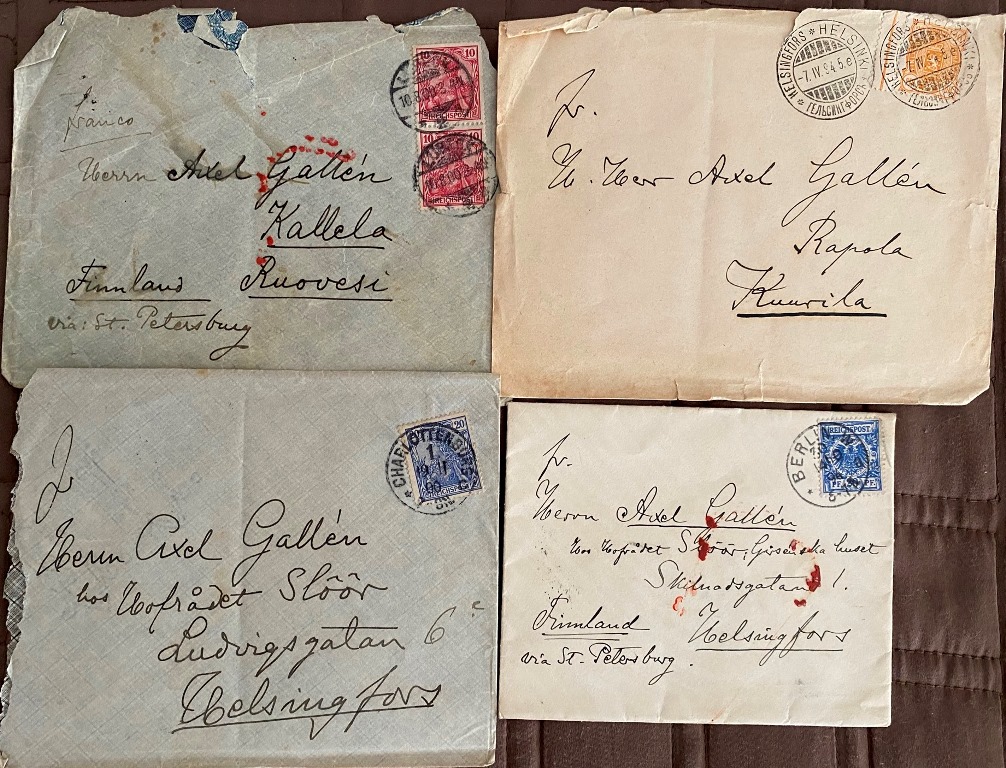 fr.
franco
Herrn Axel Gallén
Kallela
Finnland Ruovesi
via: St. Petersburg
10
REICHSPOST
10
REICHSPOST
HELSINGFORS * HELSINKI *
-7.IV.94.5.e
ГЕЛЬСИНГФОРСЪ
HELSINGFORS
7.IV.94.5.e
fr.
H. Herr Axel Gallén
Rapola
Kuurila
CHARLOTTENBURG
1
20
REICHSPOST
Herrn Axel Gallén
hos Hofrådet Slöör
Ludvigsgatan 6
Helsingfors
BERLIN
REICHSPOST
fr.
Herrn Axel Gallén
hos Hofrådet Slöör, huset
Skilnadsgatan 1.
Finnland Helsingfors
via St. Petersburg.